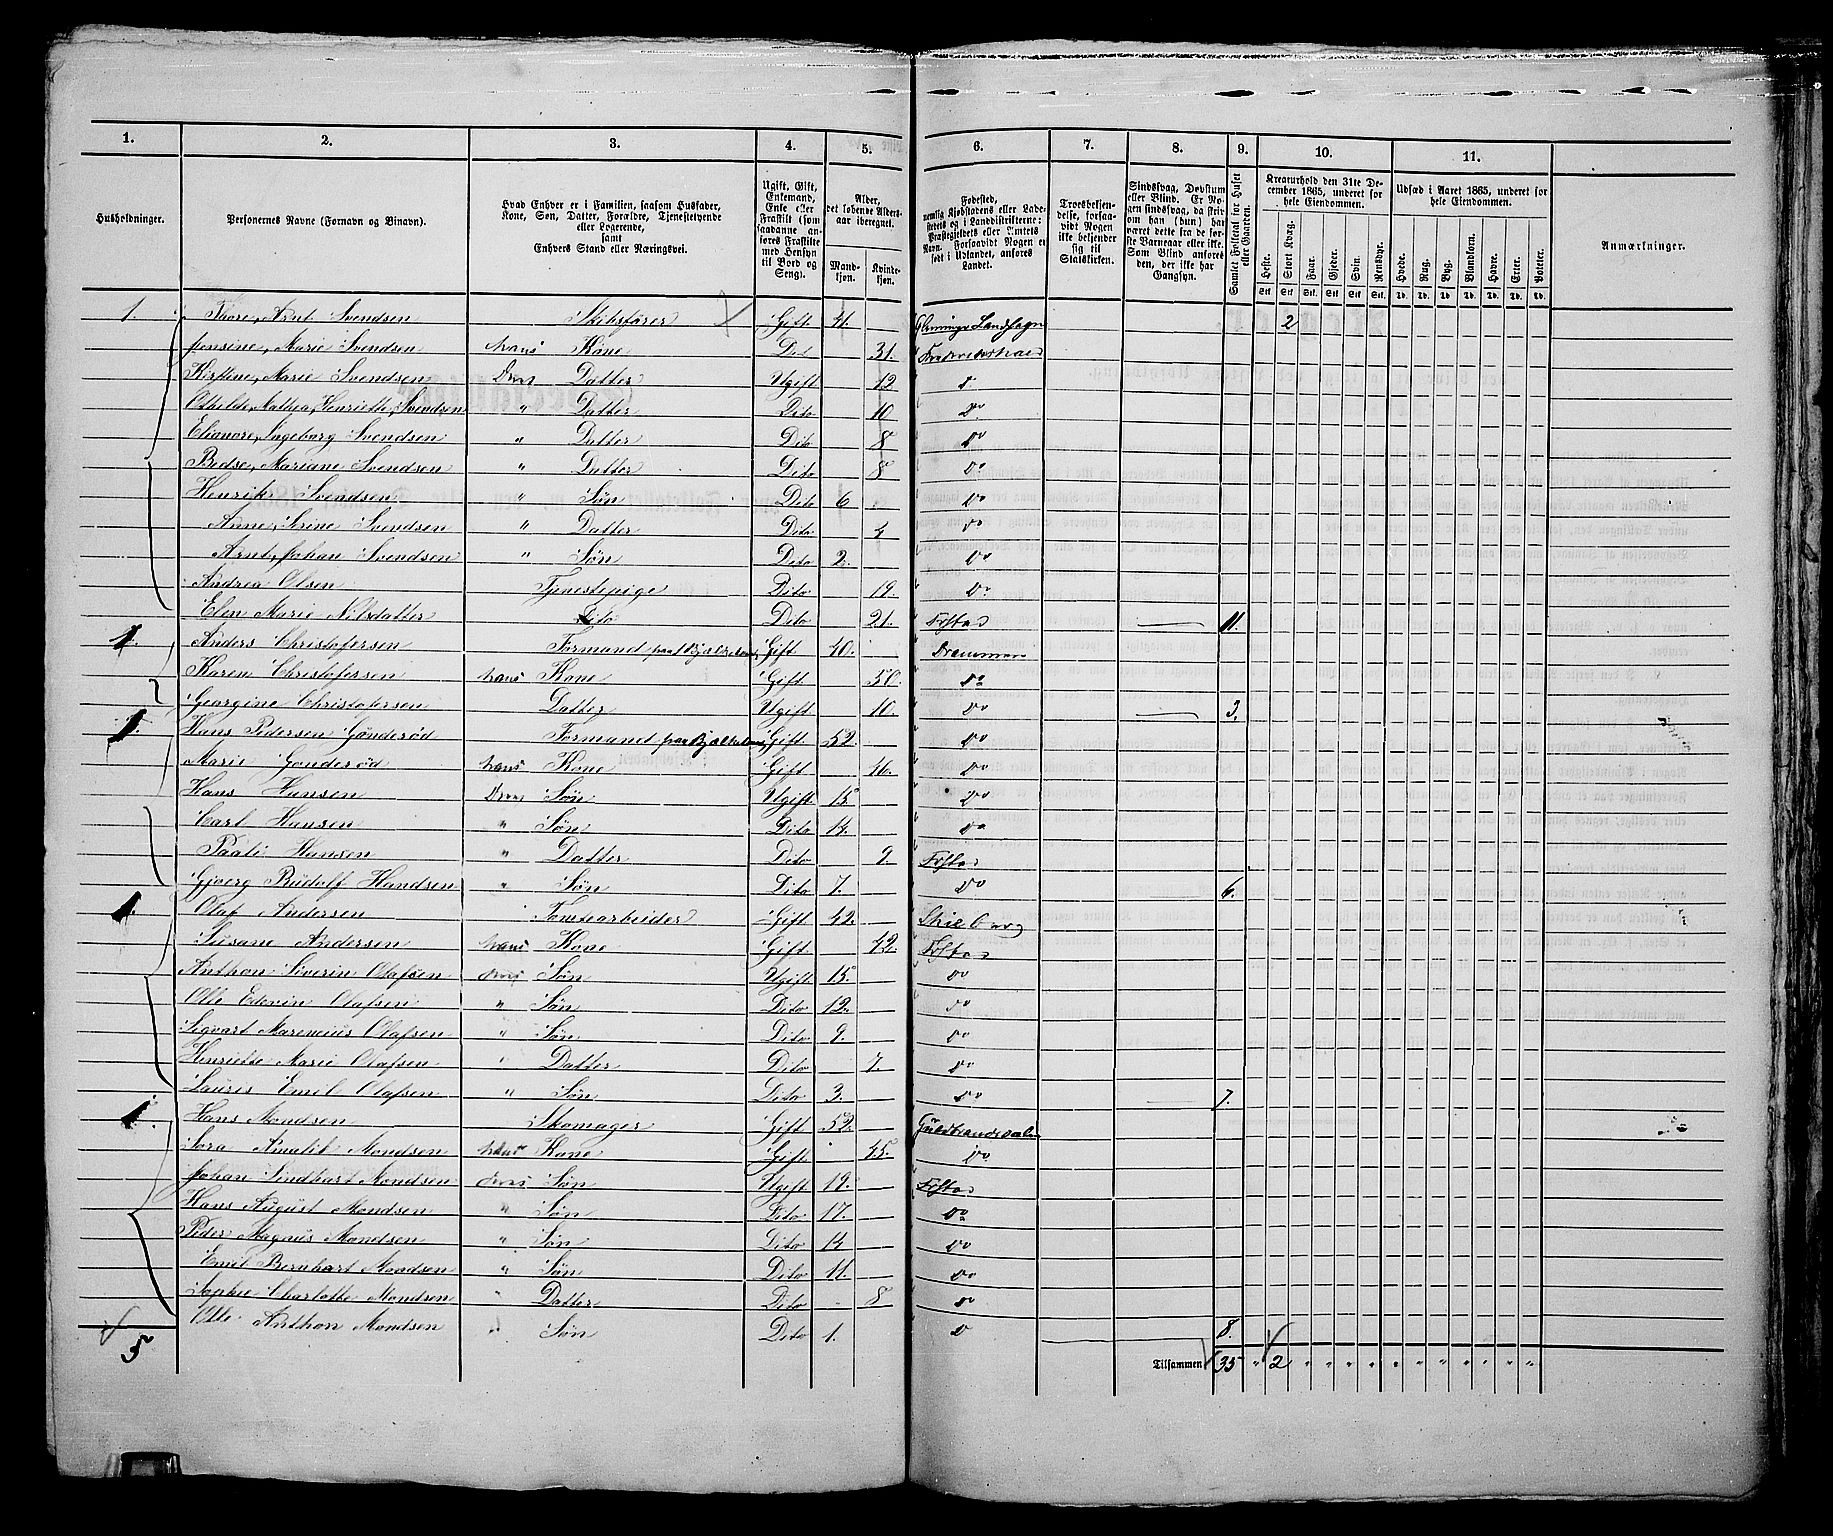 1. 2. 3. 4. 5. 6. 7. 8. 9. 10. 11.
Husholdninger.
Personernes Navne (Fornavn og Binavn).
Hvad Enhver er i Familien, saasom Husfader, Kone, Søn, Datter, Forældre, Tjenestetyende eller Logerende, samt Enhvers Stand eller Næringsvei.
Ugift, Gift, Enkemand, Enke eller Fraskilt (som saadanne anføres Fraskilte med Hensyn til Bord og Seng).
Alder, det løbende Aldersaar iberegnet.
Mandkjøn. Kvindekjøn.
Fødested, nemlig Kjøbstadens eller Ladestedets og i Landdistrikterne: Præstegjeldets eller Amtets Navn. Forsaavidt Nogen er født i Udlandet, anføres Landet.
Troesbekjendelse, forsaavidt Nogen ikke bekjender sig til Statskirken.
Sindssvag, Døvstum eller Blind. Er Nogen sindssvag, da skrives om han (hun) har været dette fra de første Barneaar eller ikke. Som Blind anføres den, der ikke har Gangsyn.
Samlet Folketal for Huset eller Gaarden.
Kreaturhold den 31te December 1865, underet for hele Eiendommen.
Heste. Stort Kvæg. Faar. Gjeder. Svin. Rensdyr.
Udsæd i Aaret 1865, underet for hele Eiendommen.
Hvede. Rug. Byg. Blandkorn. Havre. Erter. Poteter.
Anmærkninger.
Stk. Stk. Stk. Stk. Stk. Stk. Td. Td. Td. Td. Td. Td. Td.
1. Thore, Arnt Svendsen Skibsfører Gift 41. Glemminge Landsogn 2
Jensine, Marie Svendsen hans Kone Do 31. Frederiksstad
Kirstine, Marie Svendsen Dres Datter Ugift 12 Do
Othilde, Mathea, Henriette, Svendsen " Datter Dito 10 Do
Elionore, Ingeborg Svendsen " Datter Dito 8 Do
Bedse, Mariane Svendsen " Datter Dito 8 Do
Henrik Svendsen " Søn Dito 6 Do
Anne, Serine Svendsen " Datter Dito 4 Do
Arnt, Johan Svendsen " Søn Dito 2. Do
Andrea Olsen Tjenestepige Dito 19. Do
Elen Marie Nilsdatter Dito Dito 21. Frstad 11.
1. Anders Christofersen Formand paa Gift 40. Drammen
Karen Christofersen hans Kone Gift 50. Do
Georgine Christofersen Datter Ugift 10. Do 3.
1. Hans Pedersen Gonderød Formand paa Gift 52. Do
Marie Gonderød hans Kone Gift 46. Do
Hans Hansen Dres Søn Ugift 15. Do
Carl Hansen " Søn Dito 14. Do
Paali Hansen " Datter Dito 9. Frstad
Gjoerg Rudolf Handsen " Søn Dito 7. Do 6.
1. Olaf Andersen Tomtearbeider Gift 42.
Susane Andersen hans Kone Gift 42. Frstad
Anthon Siverin Olafsen dres Søn Ugift 15. Do
Olle Edevin Olafsen " Søn Dito 12. Do
Sigvart Marenius Olafsen " Søn Dito 9. Do
Henriette Marie Olafsen " Datter Dito 7. Do
Lauris Emil Olafsen " Søn Dito 3. Do 7.
1. Hans Mondsen Skomager Gift 52. Guldbrandsdalen
Sora Amalie Mondsen hans Kone Gift 45. Do
Johan Lindhart Mondsen dres Søn Ugift 19. Frstad
Hans August Mondsen " Søn Dito 17. Do
Peder Magnus Mondsen " Søn Dito 14 Do
Emil Bernhart Mondsen " Søn Dito 11. Do
Sophie Charlotte Mondsen " Datter Dito 8 Do
Olle Anthon Mondsen " Søn Dito 1. Do 8.
5 Tilsammen 35 " 2 " " " " " " " " " " "